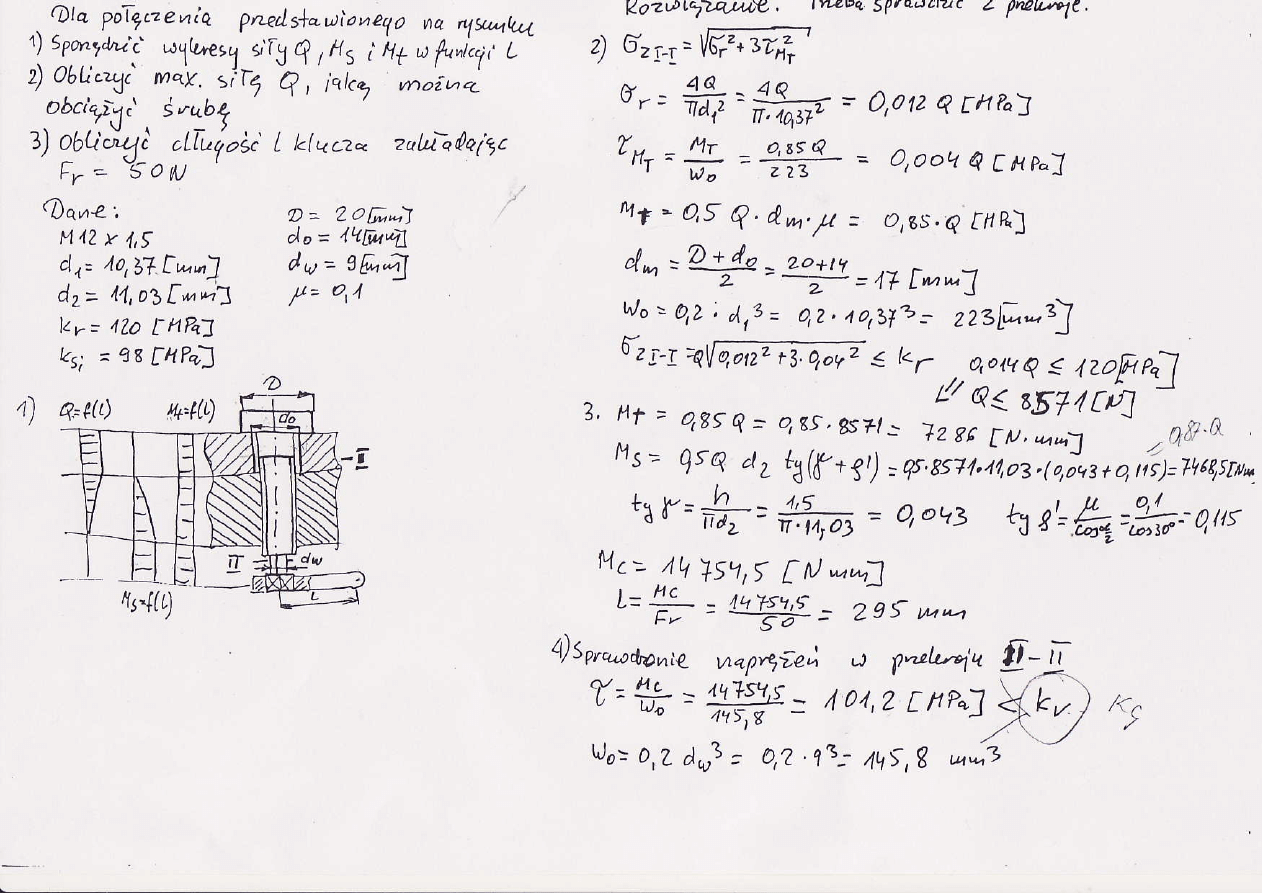 Dla połączenia przedstawionego na rysunku
1) Sporządzić wykresy siły Q, Ms i Mt w funkcji L
2) Obliczyć max. siłę Q, jaką można
obciążyć śrubę
3) Obliczyć długość l klucza zakładając
Fr = 50N
Dane:
M12 x 1,5
d1 = 10,37 [mm]
d2 = 11,03 [mm]
kr = 120 [MPa]
ksj = 98 [MPa]
D = 20 [mm]
do = 14 [mm]
dw = 9 [mm]
μ = 0,1
1) Q=f(l) Mt=f(l)
D
do
I
II dw
L
Ms=f(l)
Rozwiązanie. Trzeba sprawdzić 2 przekroje.
2) σz I-I = √σr² + 3τMT²
σr = 4Q/πd1² = 4Q/π·10,37² = 0,012 Q [MPa]
τMT = MT/Wo = 0,85Q/223 = 0,004 Q [MPa]
Mt = 0,5 Q · dm · μ = 0,85·Q [MPa]
dm = D+do/2 = 20+14/2 = 17 [mm]
Wo = 0,2 · d1³ = 0,2 · 10,37³ = 223 [mm³]
σz I-I = Q√0,012² + 3·0,04² ≤ kr 0,014Q ≤ 120 [MPa]
⇓ Q ≤ 8571 [N]
3. Mt = 0,85 Q = 0,85 · 8571 = 7286 [N·mm]
= 0,87·Q
Ms = 0,5Q d2 tg(γ+ρ') = 0,5·8571·11,03·(0,043+0,115) = 7468,5 [Nm
tg γ = h/πd2 = 1,5/π·11,03 = 0,043 tg ρ' = μ/cos α/2 = 0,1/cos30° = 0,115
Mc = 14 754,5 [Nmm]
L = Mc/Fr = 14754,5/50 = 295 mm
4) Sprawdzenie naprężeń w przekroju II-II
τ = Mc/Wo = 14754,5/145,8 = 101,2 [MPa] < kr. Ks
Wo = 0,2 dw³ = 0,2 · 9³ = 145,8 mm³